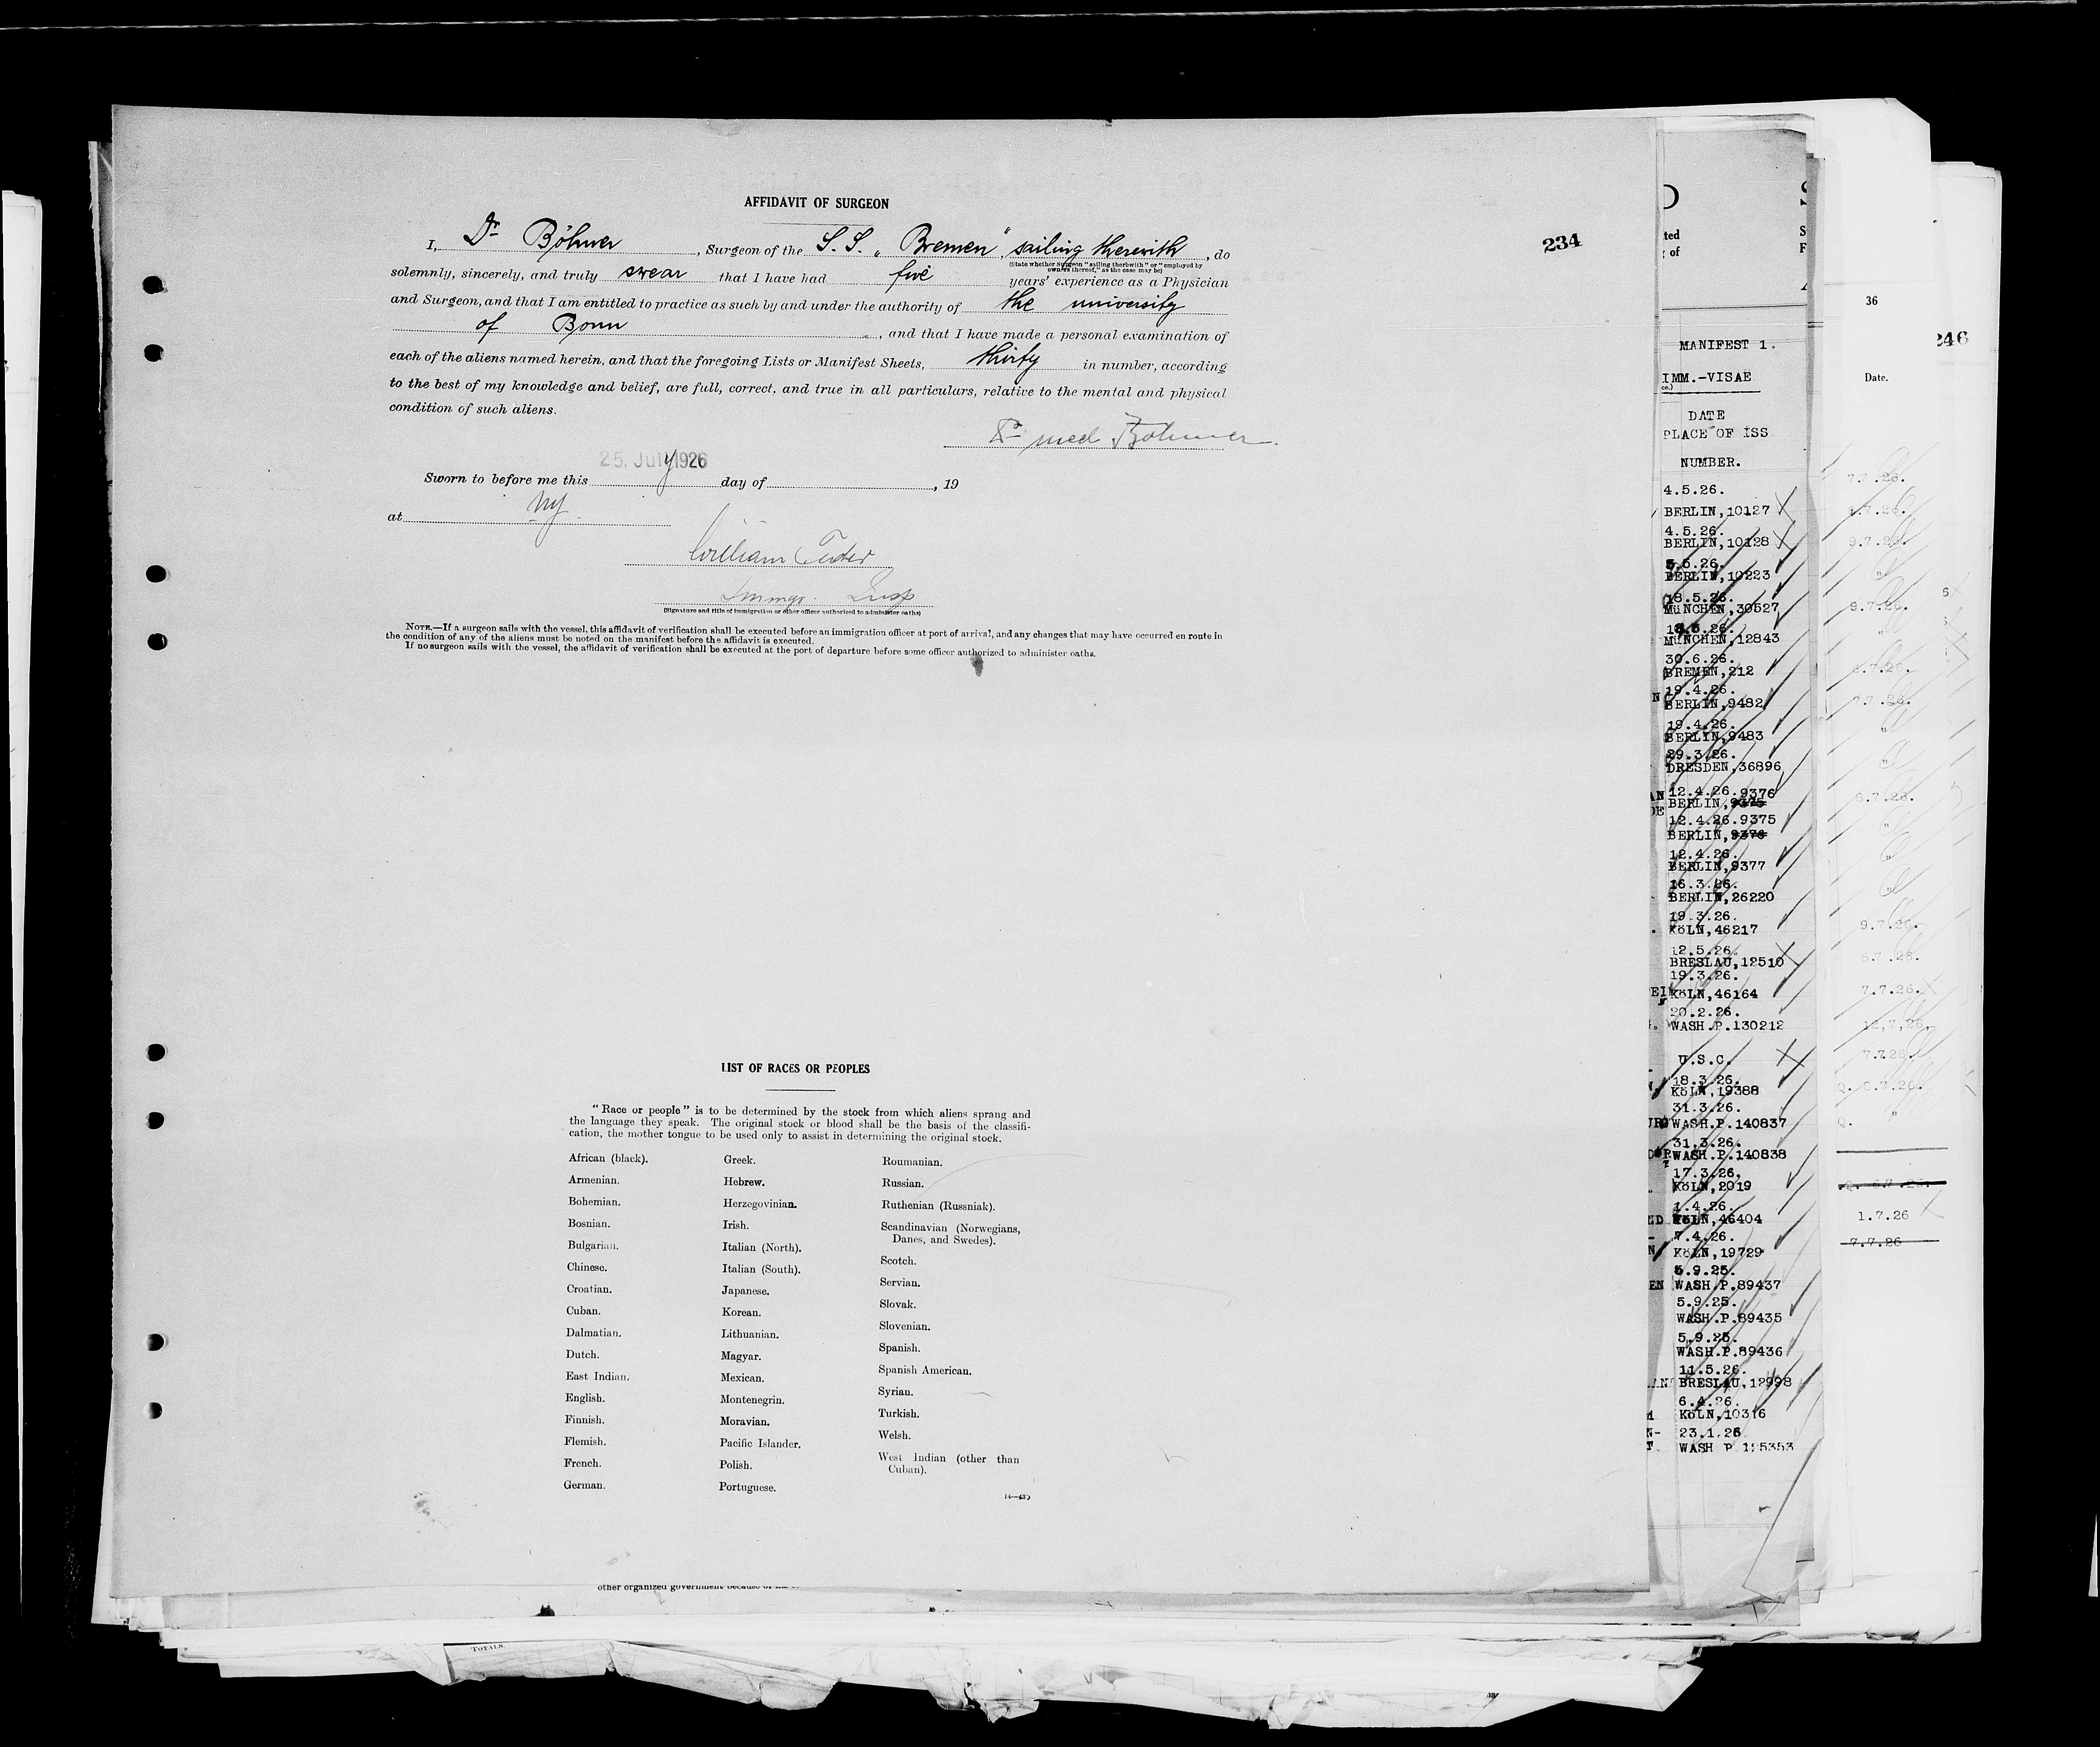 AFFIDAVIT OF SURGEON
234
I, Dr Böhmer, Surgeon of the S.S. „Bremen“, sailing therewith, do
(State whether Surgeon "sailing therewith" or "employed by
owners thereof," as the case may be)
solemnly, sincerely, and truly swear that I have had five years' experience as a Physician
and Surgeon, and that I am entitled to practice as such by and under the authority of the university
of Bonn, and that I have made a personal examination of
each of the aliens named herein, and that the foregoing Lists or Manifest Sheets, thirty in number, according
to the best of my knowledge and belief, are full, correct, and true in all particulars, relative to the mental and physical
condition of such aliens.
Dr med Böhmer
25. July 1926
Sworn to before me this day of , 19
at NY
William
Immgr. Insp
(Signature and title of immigration or other officer authorized to administer oaths)
NOTE.—If a surgeon sails with the vessel, this affidavit of verification shall be executed before an immigration officer at port of arrival, and any changes that may have occurred en route in
the condition of any of the aliens must be noted on the manifest before the affidavit is executed.
If no surgeon sails with the vessel, the affidavit of verification shall be executed at the port of departure before some officer authorized to administer oaths.
LIST OF RACES OR PEOPLES
"Race or people" is to be determined by the stock from which aliens sprang and
the language they speak. The original stock or blood shall be the basis of the classifi-
cation, the mother tongue to be used only to assist in determining the original stock.
African (black).
Armenian.
Bohemian.
Bosnian.
Bulgarian.
Chinese.
Croatian.
Cuban.
Dalmatian.
Dutch.
East Indian.
English.
Finnish.
Flemish.
French.
German.
Greek.
Hebrew.
Herzegovinian.
Irish.
Italian (North).
Italian (South).
Japanese.
Korean.
Lithuanian.
Magyar.
Mexican.
Montenegrin.
Moravian.
Pacific Islander.
Polish.
Portuguese.
Roumanian.
Russian.
Ruthenian (Russniak).
Scandinavian (Norwegians,
Danes, and Swedes).
Scotch.
Servian.
Slovak.
Slovenian.
Spanish.
Spanish American.
Syrian.
Turkish.
Welsh.
West Indian (other than
Cuban).
other organized government because of
TOTALS
MANIFEST 1.
IMM.-VISAE
DATE
PLACE OF ISS
NUMBER.
4.5.26.
BERLIN,10127
4.5.26.
BERLIN,10128
5.5.26.
BERLIN,10223
18.5.26.
MüNCHEN,30527
MüNCHEN,12843
30.6.26.
BREMEN,212
19.4.26.
BERLIN,9482
19.4.26.
BERLIN,9483
29.3.26.
DRESDEN,36896
12.4.26.9376
BERLIN,9375
12.4.26.9375
BERLIN,9376
12.4.26.
BERLIN,9377
16.3.26.
BERLIN,26220
19.3.26.
KöLN,46217
12.5.26.
BRESLAU,12510
19.3.26.
KöLN,46164
20.2.26.
WASH.P.130212
U.S.C.
18.3.26.
KöLN,19388
31.3.26.
WASH.P.140837
31.3.26.
WASH.P.140838
17.3.26.
KöLN,2019
1.4.26.
KöLN,46404
7.4.26.
KöLN,19729
5.9.25.
WASH.P.89437
5.9.25.
WASH.P.89435
5.9.25.
WASH.P.89436
11.5.26.
BRESLAU,12998
6.4.26.
KöLN,10316
23.1.26
WASH P 125353
36
246
Date.
7.7.26.
9.7.26.
9.7.26.
7.7.26.
6.7.26.
9.7.26.
7.7.26.
12,7,26.
7.7.26.
1.7.26
7.7.26